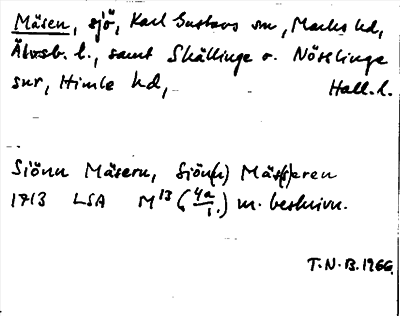 Mäsen, sjö, Karl Gustavs sn, Marks hd,
Älvsb. l., samt Skällinge o. Nösslinge
snr, Himle hd, Hall. l.
Siönn Mäsern, Siön(n) Mäs(s)eren
1713 LSA M 13 (4a/1.) m. beskrivn.
T.N.B. 1966.